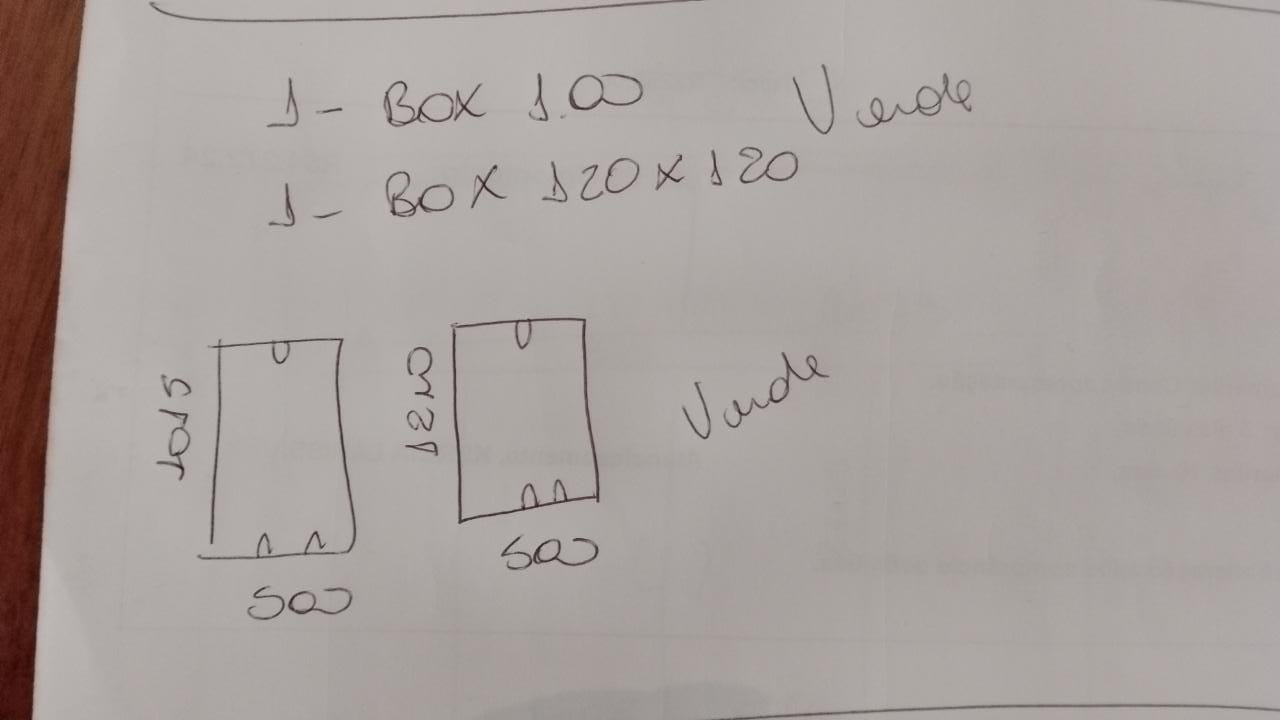 1- BOX 1.00 Verde
1- BOX 120 X 120
1015
500
1210
500
Verde